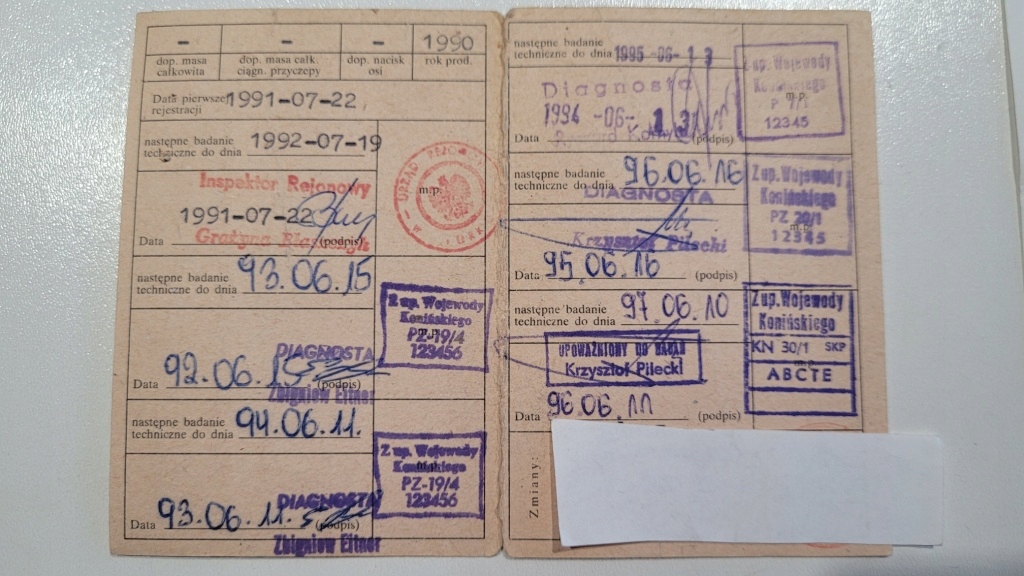 – – – 1990
dop. masa całkowita dop. masa całk. ciągn. przyczepy dop. nacisk osi rok prod.
Data pierwszej rejestracji 1991-07-22
następne badanie techniczne do dnia 1992-07-19
Inspektor Rejonowy
m.p.
1991-07-22
Data (podpis)
Grażyna
URZĄD REJONOWY
następne badanie techniczne do dnia 93.06.15
Z up. Wojewody
Konińskiego
PZ-19/4
123456
DIAGNOSTA
Data 92.06.15. (podpis)
Zbigniew Eitner
następne badanie techniczne do dnia 94.06.11.
Z up. Wojewody
Konińskiego
m.p.
PZ-19/4
123456
DIAGNOSTA
Data 93.06.11. (podpis)
Zbigniew Eitner
następne badanie techniczne do dnia 1995-06-13
Z up. Wojewody
Konińskiego
m.p.
12345
Diagnosta
1994-06-13
Data (podpis)
następne badanie techniczne do dnia 96.06.16
DIAGNOSTA
Z up. Wojewody
Konińskiego
PZ 20/1
m.p.
12345
Krzysztof Pilecki
Data 95.06.16 (podpis)
następne badanie techniczne do dnia 97.06.10
Z up. Wojewody
Konińskiego
KN 30/1 SKP
ABCTE
UPOWAŻNIONY DO BADAŃ
Krzysztof Pilecki
Data 96.06.11 (podpis)
Zmiany: